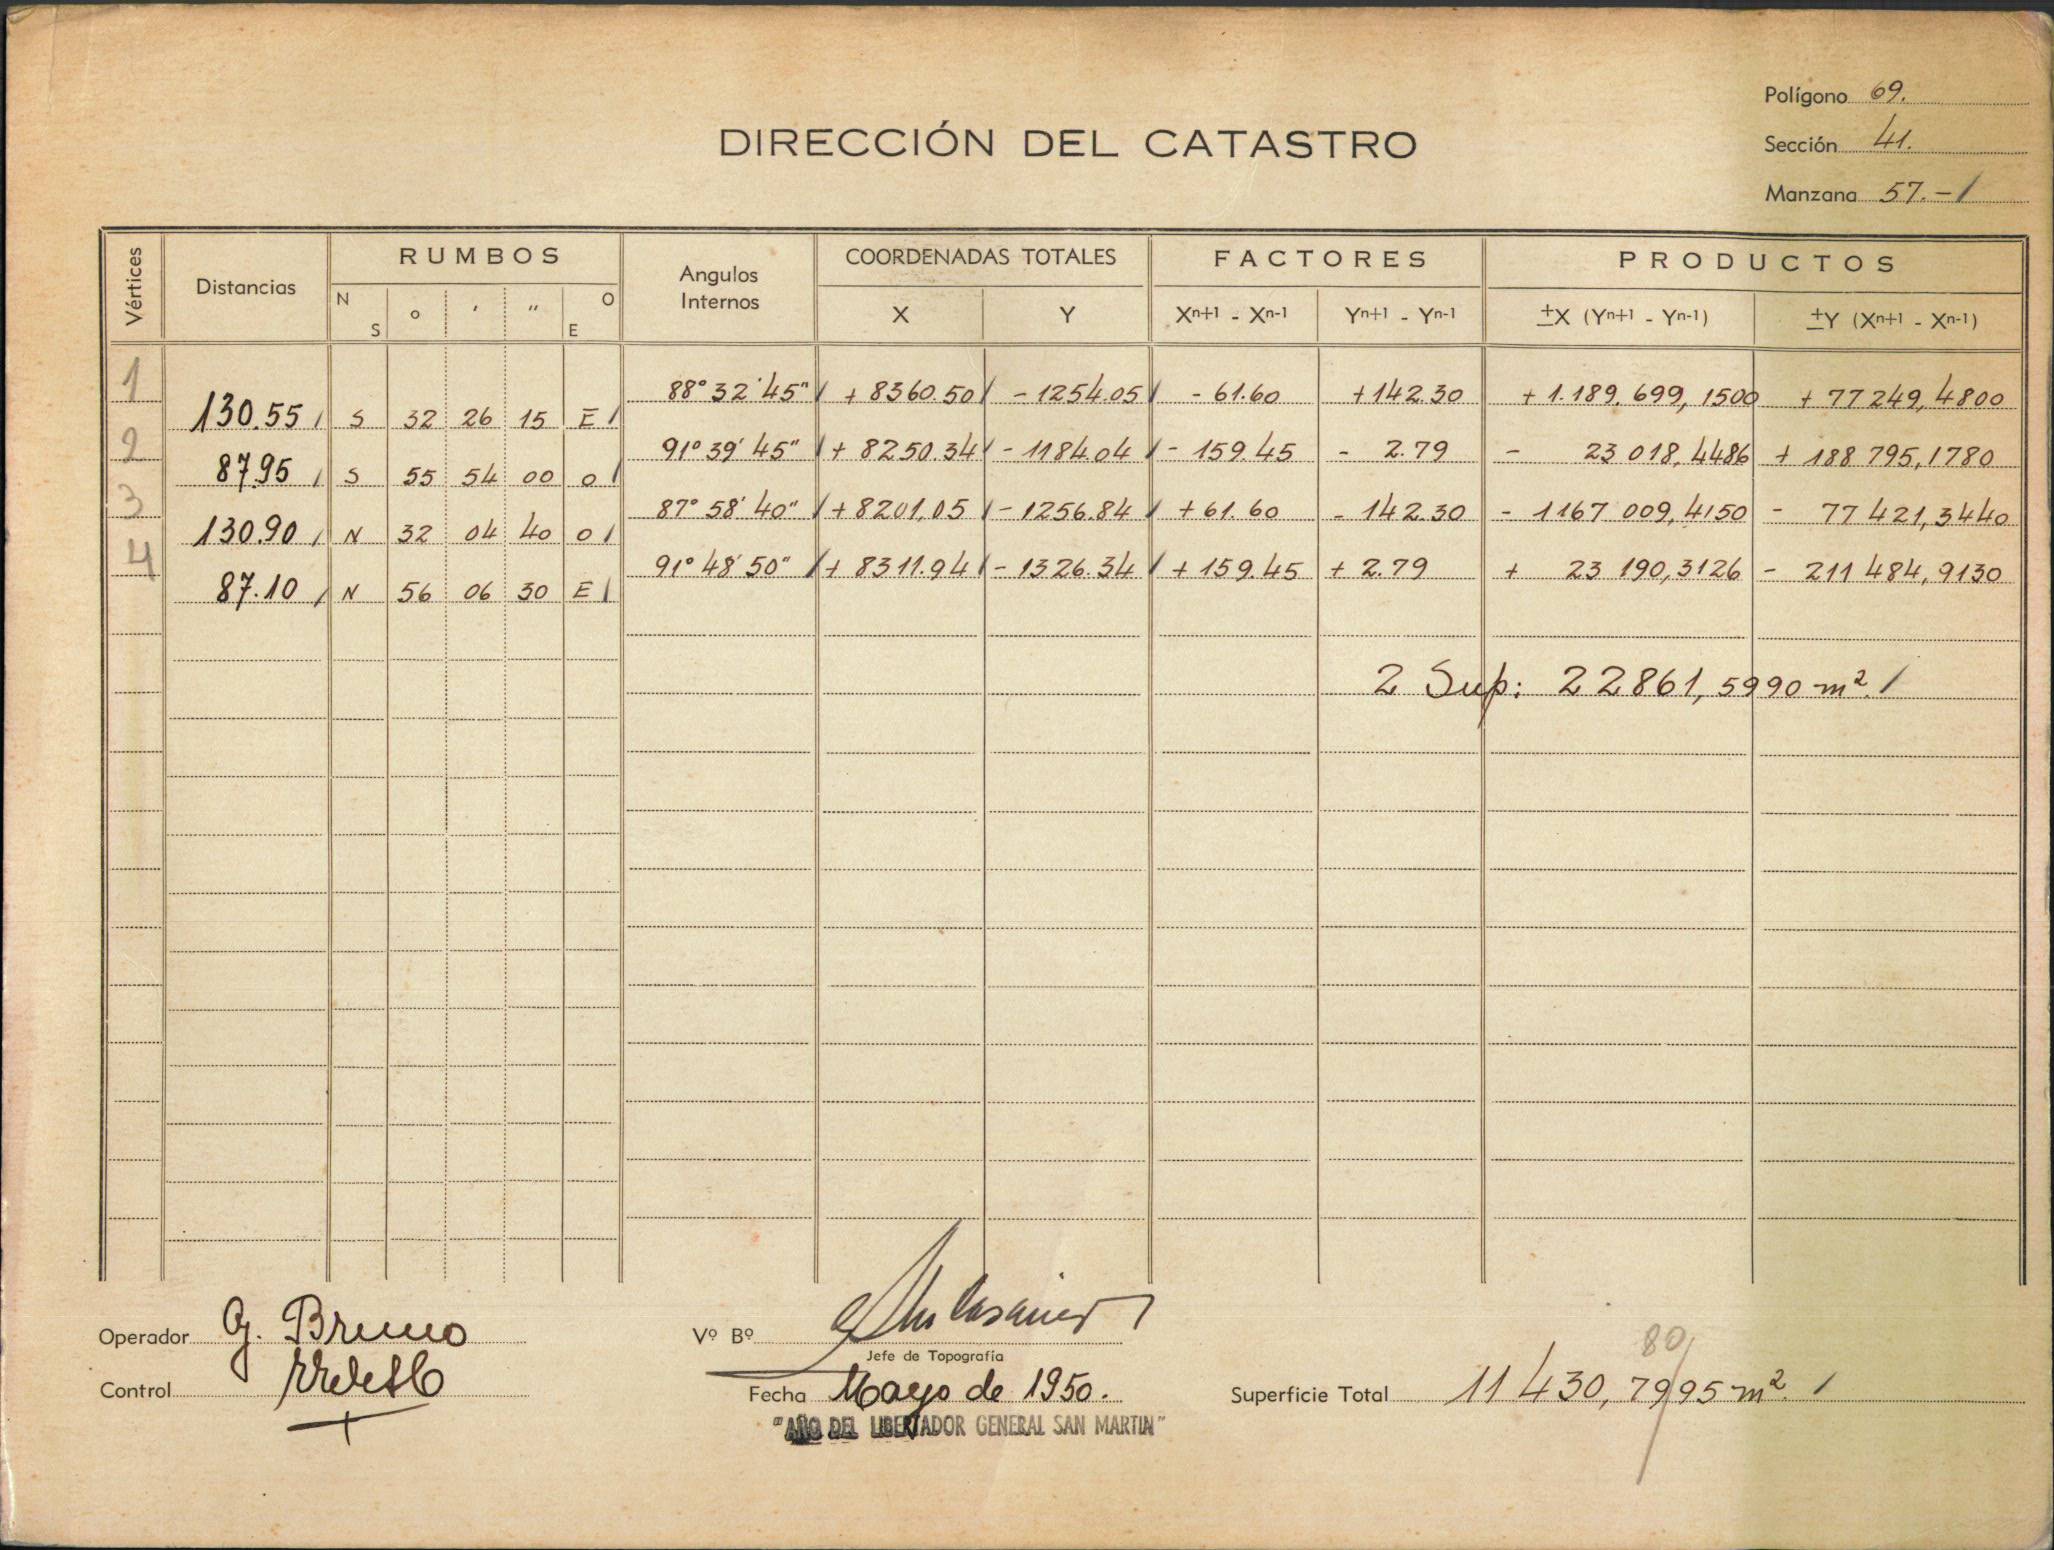 Polígono 69.
DIRECCIÓN DEL CATASTRO
Sección 41.
Manzana 57.-/
Vértices Distancias RUMBOS Angulos Internos COORDENADAS TOTALES FACTORES PRODUCTOS
N S o ' " O E X Y Xn+1 - Xn-1 Yn+1 - Yn-1 ±X (Yn+1 - Yn-1) ±Y (Xn+1 - Xn-1)
1 88° 32' 45" / + 8360.50 / - 1254.05 / - 61.60 + 142.30 + 1.189.699,1500 + 77 249,4800
130.55 / S 32 26 15 E /
2 91° 39' 45" / + 8250.34 / - 1184.04 / - 159.45 - 2.79 - 23 018,4486 + 188 795,1780
87.95 / S 55 54 00 O /
3 87° 58' 40" / + 8201,05 / - 1256.84 / + 61.60 - 142.30 - 1167 009,4150 - 77 421,3440
130.90 / N 32 04 40 O /
4 91° 48' 50" / + 8311.94 / - 1326.34 / + 159.45 + 2.79 + 23 190,3126 - 211 484,9130
87.10 / N 56 06 30 E /
2 Sup: 22861,5990 m². /
Operador G. Bruno
Vº Bº
Jefe de Topografía
80
Control
Fecha Mayo de 1950.
Superficie Total 11 430,7995 m². /
"AÑO DEL LIBERTADOR GENERAL SAN MARTIN"